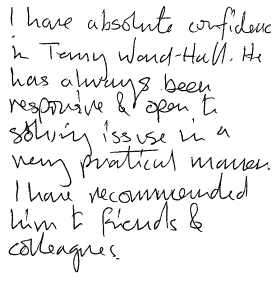 I have absolute confidence
in Terry Ward-Hall. He
has always been
responsive & open to
solving issuse in a
very pratical manner.
I have recommended
him to friends &
colleagues.